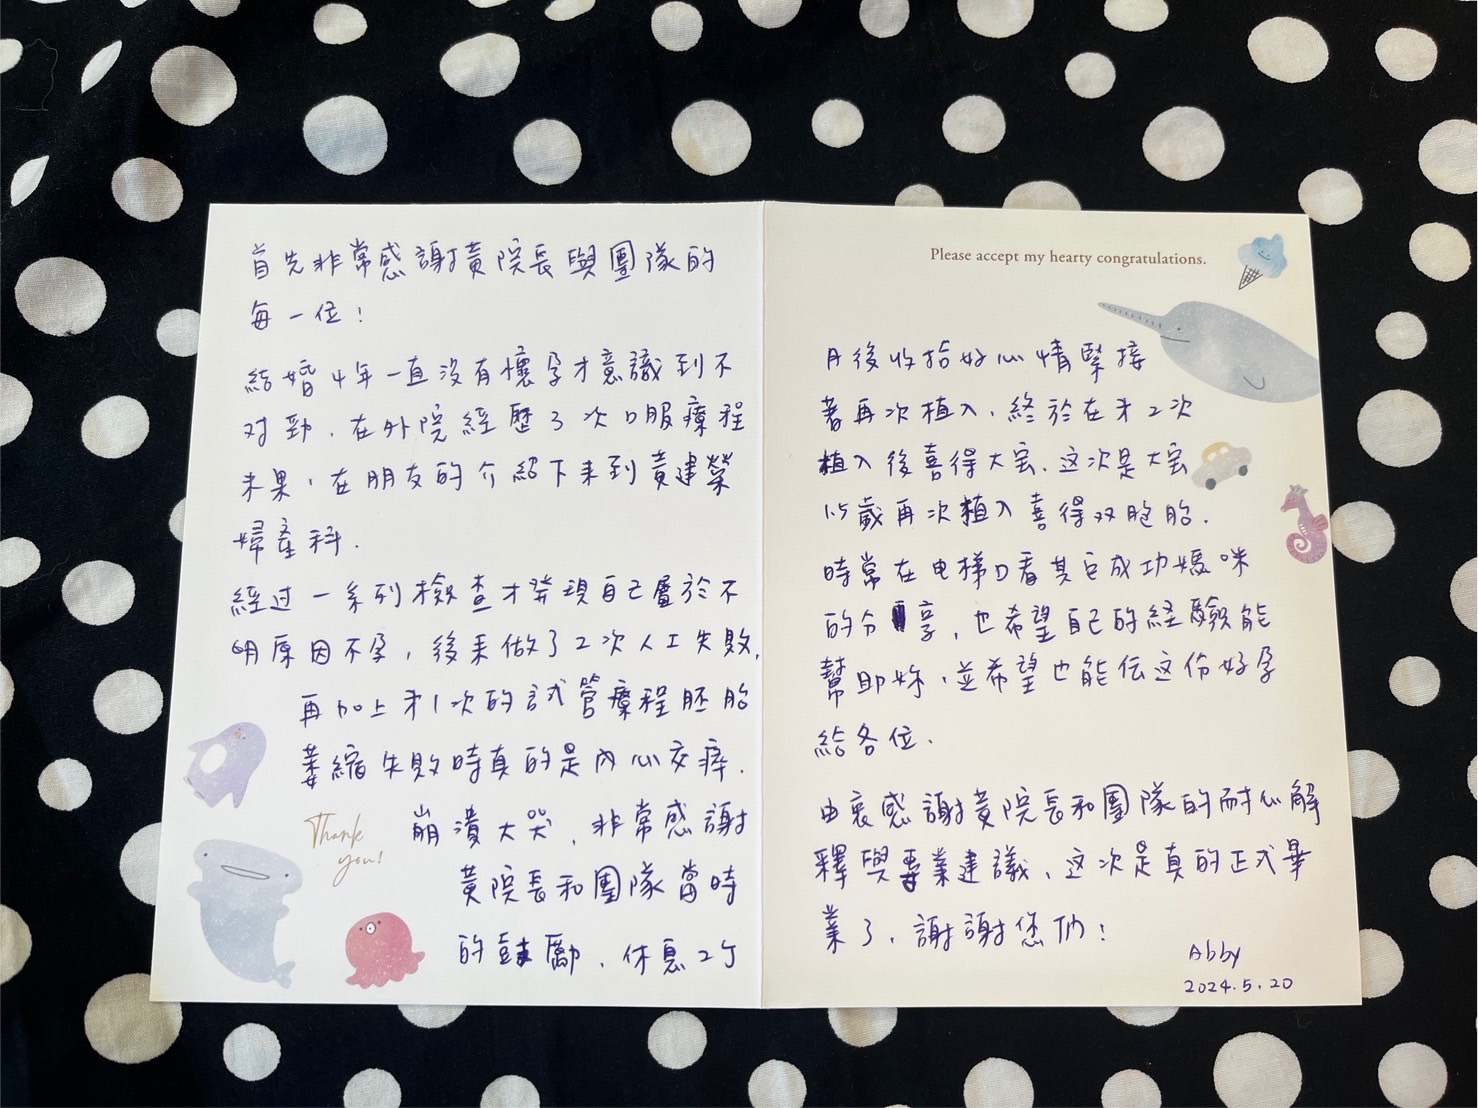 首先非常感謝黃院長與團隊的
每一位!
結婚4年一直沒有懷孕才意識到不
対勁、在外院經歷3次口服療程
未果,在朋友的介紹下来到黃建榮
婦產科.
經过一系列檢查才発現自己屬於不
明原因不孕,後来做了2次人工失敗,
再加上才1次的試管療程胚胎
萎縮失敗時真的是內心交瘁.
崩潰大哭、非常感謝
黃院長和團隊當時
的鼓勵、休息2个
Thank
you!
Please accept my hearty congratulations.
月後收拾好心情緊接
著再次植入、終於在才2次
植入後喜得大宝、这次是大宝
1.5歲再次植入喜得双胞胎.
時常在电梯口看其它成功媽咪
的分享,也希望自己的経驗能
幫助妳、並希望也能伝这份好孕
給各位.
由衷感謝黃院長和團隊的耐心解
釋與專業建議、这次是真的正式畢
業了、謝謝您们!
Abby
2024.5.20